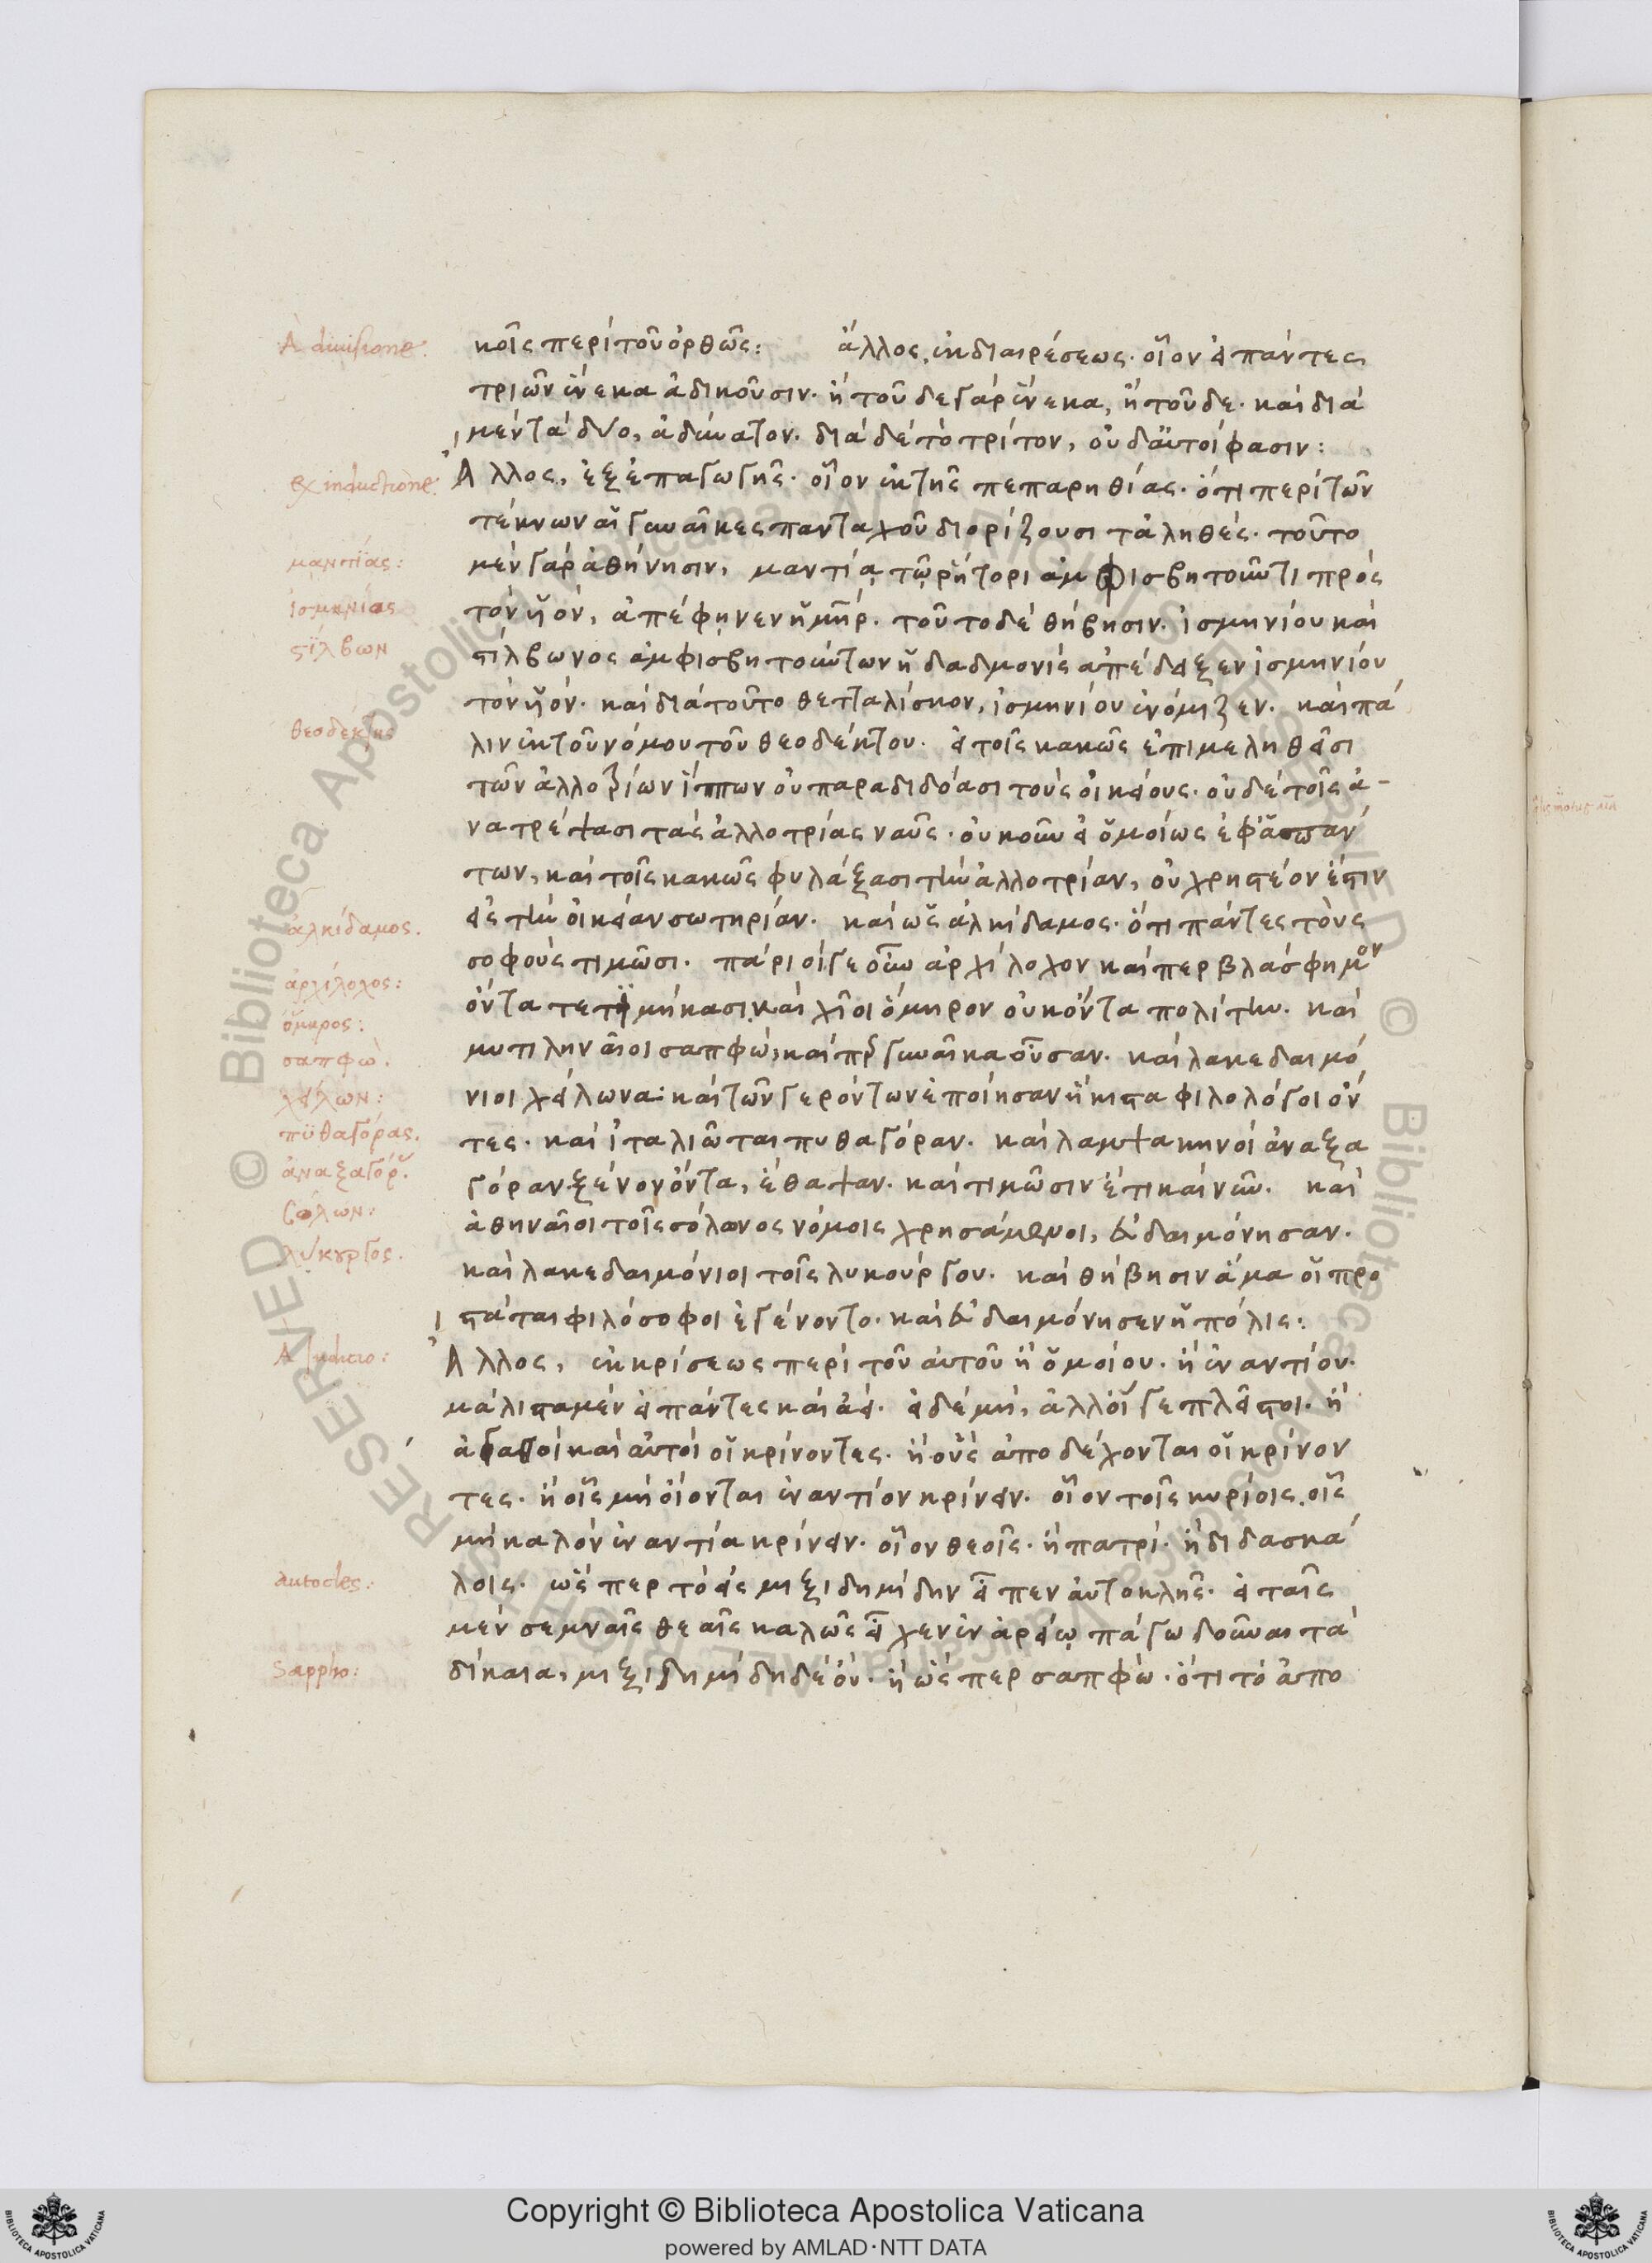 A diuisione.
ex inductione.
μαντίας:
ἰσμηνίας
στίλβων
θεοδέκτης
ἀλκίδαμος.
ἀρχίλοχος:
ὅμηρος:
σαπφὼ.
χείλων:
πυθαγόρας.
ἀναξαγόρ
σόλων:
λύκουργος.
A iudicio:
Autocles:
Sappho:
κοῖς περὶ τοῦ ὀρθῶς: ἄλλος, ἐκ διαιρέσεως· οἷον εἰ πάντες
τριῶν ἕνεκα ἀδικοῦσιν· ἢ τοῦδε γὰρ ἕνεκα, ἢ τοῦδε· καὶ διὰ
μὲν τὰ δύο, ἀδύνατον· διὰ δὲ τὸ τρίτον, οὐδ' αὐτοί φασιν:
Ἄλλος, ἐξ ἐπαγωγῆς· οἷον ἐκ τῆς πεπαρηθίας· ὅτι περὶ τῶν
τέκνων αἱ γυναῖκες πανταχοῦ διορίζουσι τἀληθές· τοῦτο
μὲν γὰρ ἀθήνησιν, μαντίᾳ τῷ ῥήτορι ἀμφισβητοῦντι πρὸς
τὸν υἱὸν, ἀπέφηνεν ἡ μηρ· τοῦτο δὲ θήβησιν· ἰσμηνίου καὶ
στίλβωνος ἀμφισβητούντων ἡ δαδμονὶς ἀπέδειξεν ἰσμηνίου
τὸν υἱὸν· καὶ διὰ τοῦτο θετταλίσκον, ἰσμηνίου ἐνόμιζεν· καὶ πά
λιν ἐκ τοῦ νόμου τοῦ θεοδέκτου· εἰ τοῖς κακῶς ἐπιμεληθεῖσι
τῶν ἀλλοτρίων ἵππων οὐ παραδιδόασι τοὺς οἰκείους· οὐδὲ τοῖς ἀ-
νατρέψασι τὰς ἀλλοτρίας ναῦς· οὐκοῦν εἰ ὁμοίως ἐφ' ἁπάν
των, καὶ τοῖς κακῶς φυλάξασι τὴν ἀλλοτρίαν, οὐ χρηστέον ἐστὶν
εἰς τὴν οἰκείαν σωτηρίαν· καὶ ὡς ἀλκίδαμος· ὅτι πάντες τοὺς
σοφοὺς τιμῶσι· πάριοι γε οὖν ἀρχίλοχον καίπερ βλάσφημον
ὄντα τετιμήκασι, καὶ χῖοι ὅμηρον οὐκ ὄντα πολίτην· καὶ
μυτιληναῖοι σαπφὼ, καίπερ γυναῖκα οὖσαν· καὶ λακεδαιμό
νιοι χείλωνα· καὶ τῶν γερόντων ἐποίησαν ἥκιστα φιλολόγοι ὄν
τες· καὶ ἰταλιῶται πυθαγόραν· καὶ λαμψακηνοὶ ἀναξα
γόραν ξένον ὄντα, ἔθαψαν· καὶ τιμῶσιν ἔτι καὶ νῦν· καὶ
ἀθηναῖοι τοῖς σόλωνος νόμοις χρησάμενοι, εὐδαιμόνησαν.
καὶ λακεδαιμόνιοι τοῖς λυκούργου· καὶ θήβησιν ἅμα οἱ προ
στάται φιλόσοφοι ἐγένοντο· καὶ εὐδαιμόνησεν ἡ πόλις:
Ἄλλος, ἐκ κρίσεως περὶ τοῦ αὐτοῦ ἢ ὁμοίου· ἢ ἐναντίου·
μάλιστα μὲν εἰ πάντες καὶ ἀεί· εἰ δὲ μὴ, ἀλλ' οἵ γε πλεῖστοι· ἢ
ἀγαθοὶ καὶ αὐτοὶ οἱ κρίνοντες· ἢ οὓς ἀποδέχονται οἱ κρίνον
τες· ἢ οἷς μὴ οἴονται ἐναντίον κρίνειν· οἷον τοῖς κυρίοις, οἷς
μὴ καλὸν ἐναντία κρίνειν· οἷον θεοῖς· ἢ πατρί· ἢ διδασκά
λοις· ὥσπερ τὸ εἰς μιξιδημίδην εἶπεν αὐτοκλῆς· εἰ ταῖς
μὲν σεμναῖς θεαῖς καλῶς εἶχεν ἐν ἀρείῳ πάγω δοῦναι τὰ
δίκαια, μιξιδημίδη δὲ οὔ· ἢ ὥσπερ σαπφὼ· ὅτι τὸ ἀπο
Copyright © Biblioteca Apostolica Vaticana
powered by AMLAD·NTT DATA